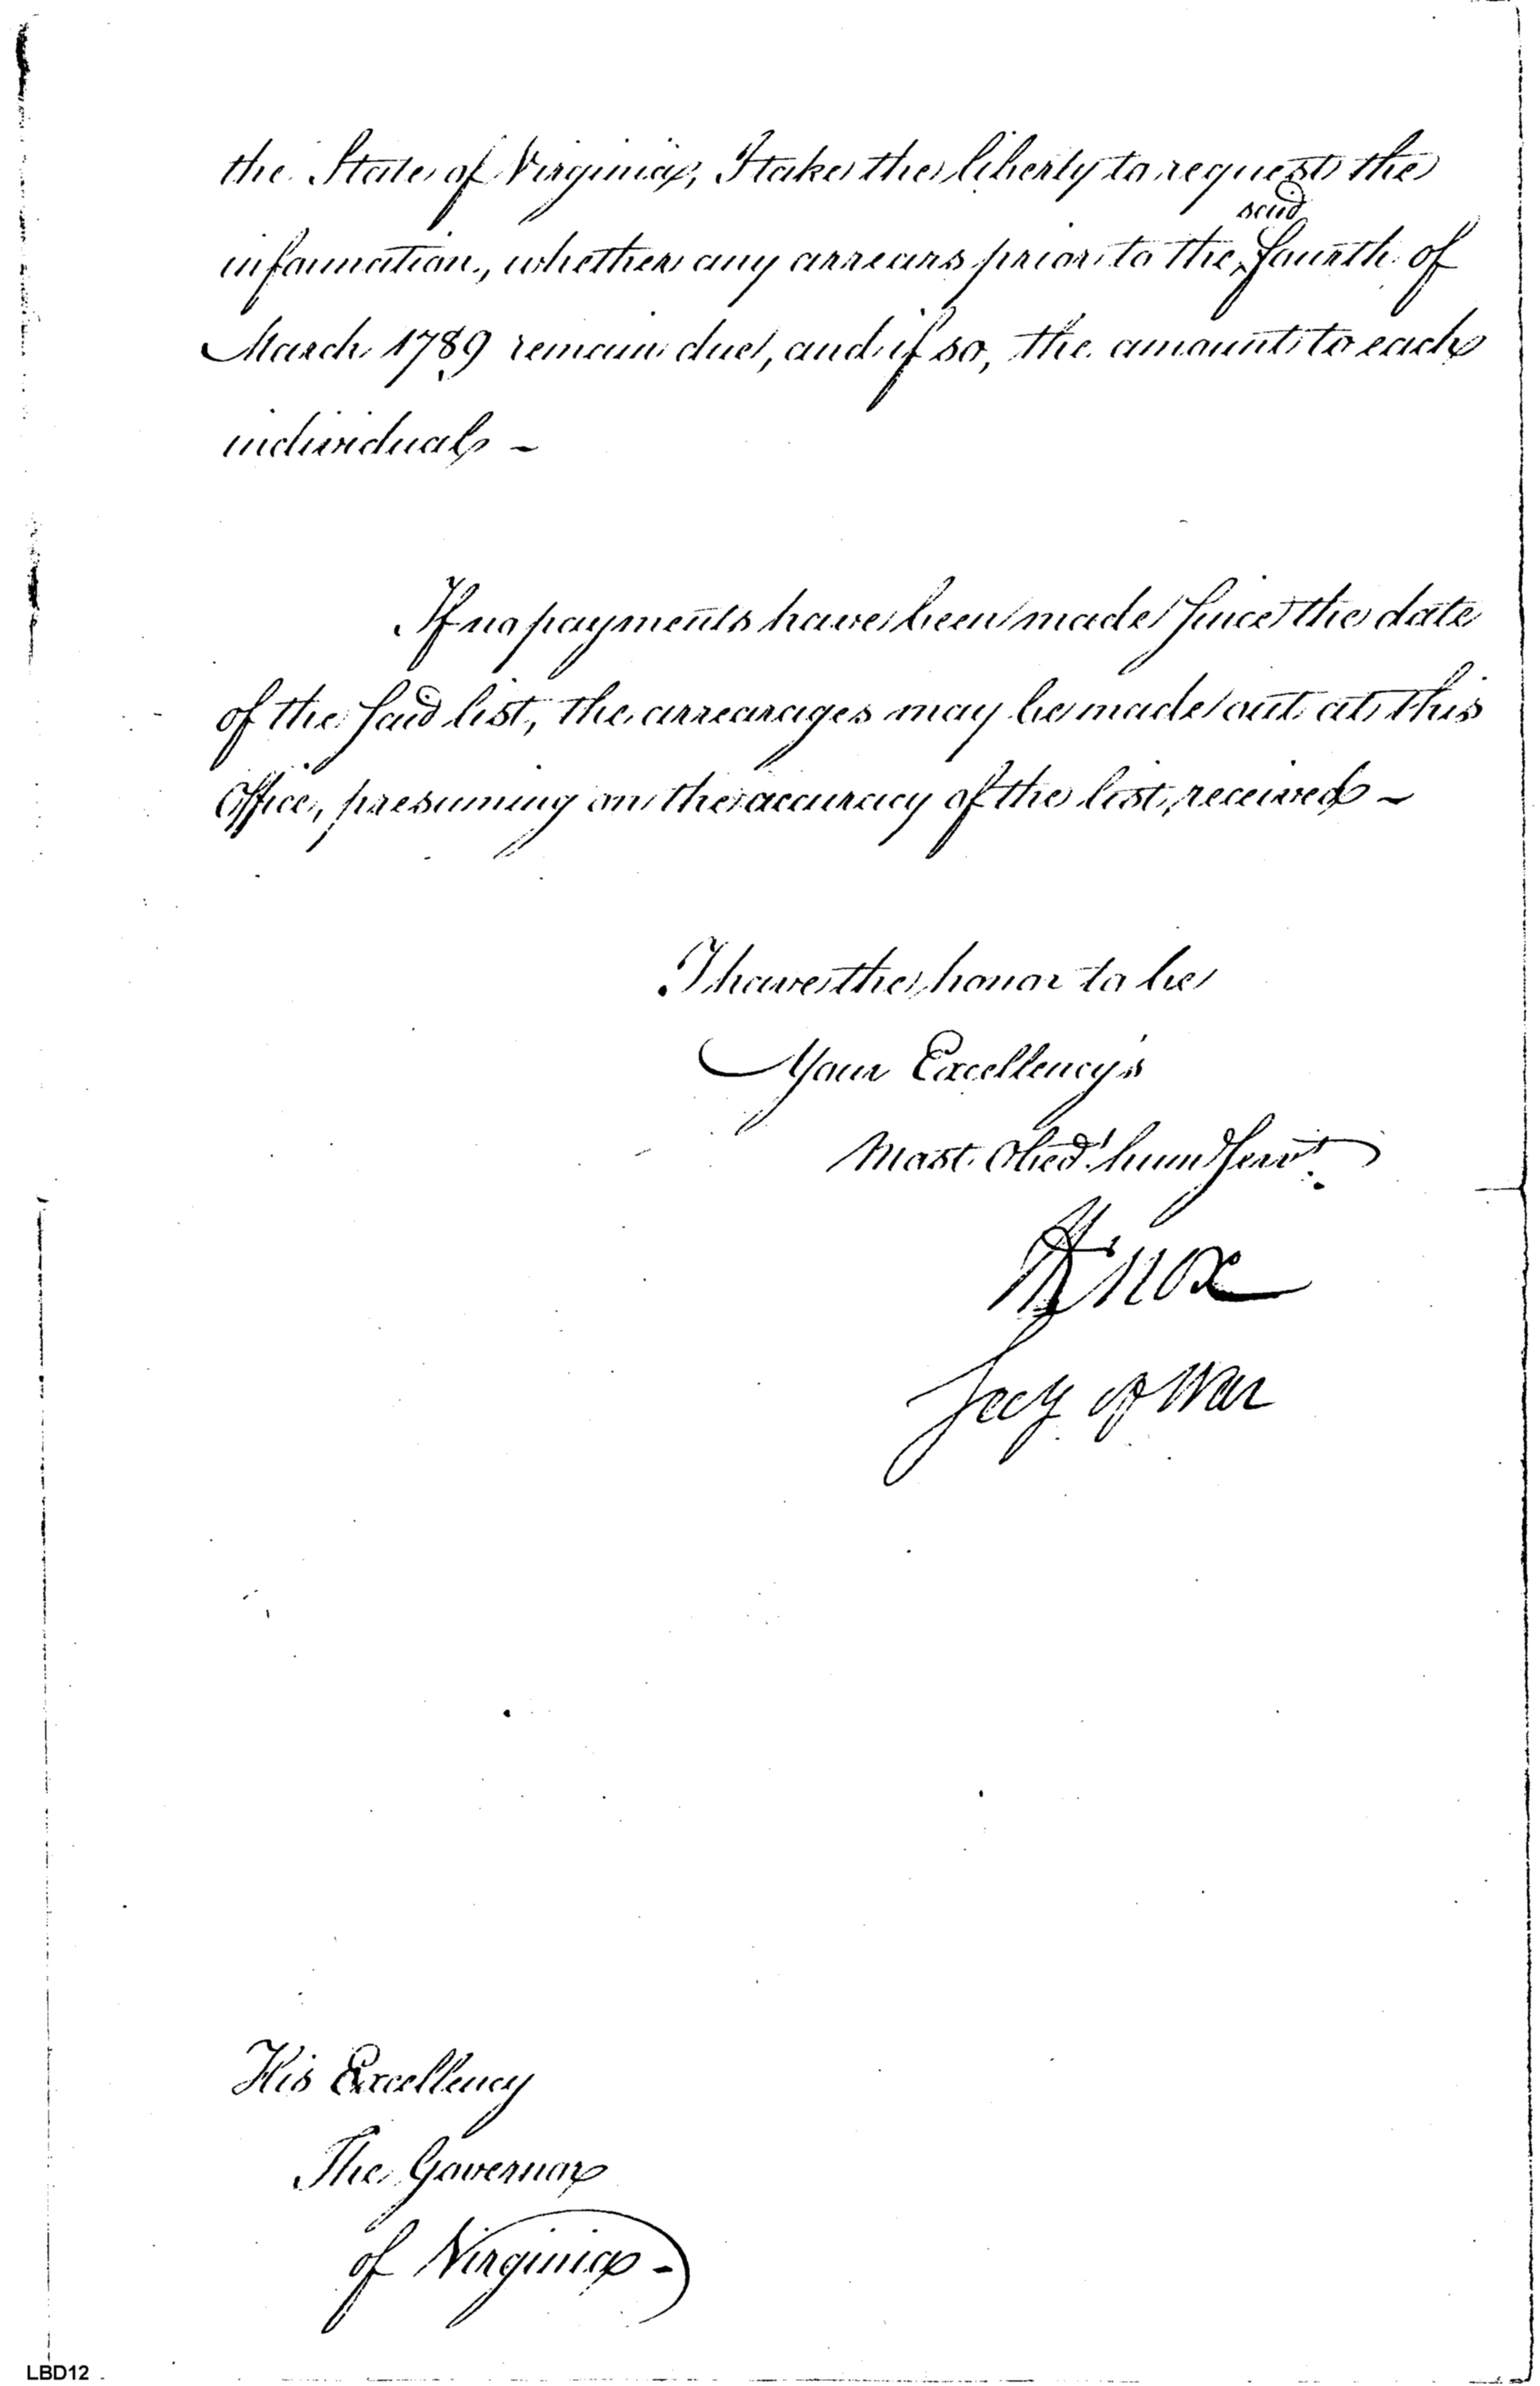 the State of Virginia, I take the liberty to request the
said
information, whether any arrears prior to the ^ fourth of
March 1789 remain due, and if so, the amount to each
individual -
If no payments have been made since the date
of the said list, the arrearages may be made out at this
Office, presuming on the accuracy of the list, received -
I have the honor to be
Your Excellency's
Most Obedt hum Servt
HKnox
Secy of War
His Excellency
The Governor
of Virginia -
LBD12